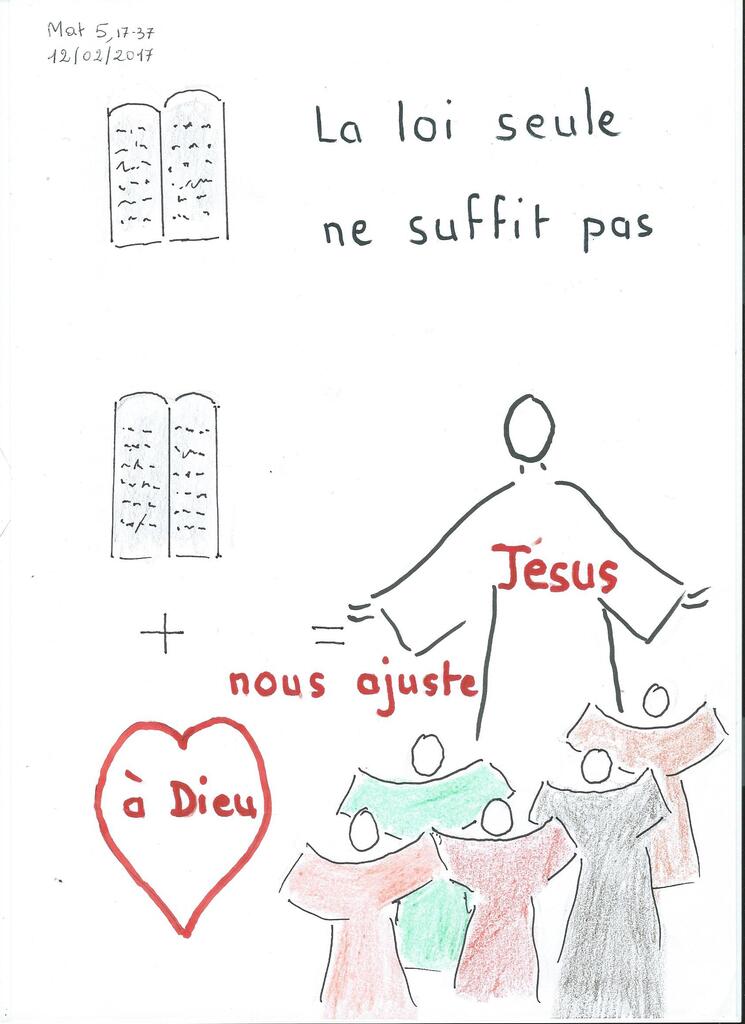 Mat 5,17-37
12/02/2017
La loi seule
ne suffit pas
Jésus
+
=
nous ajuste
à Dieu